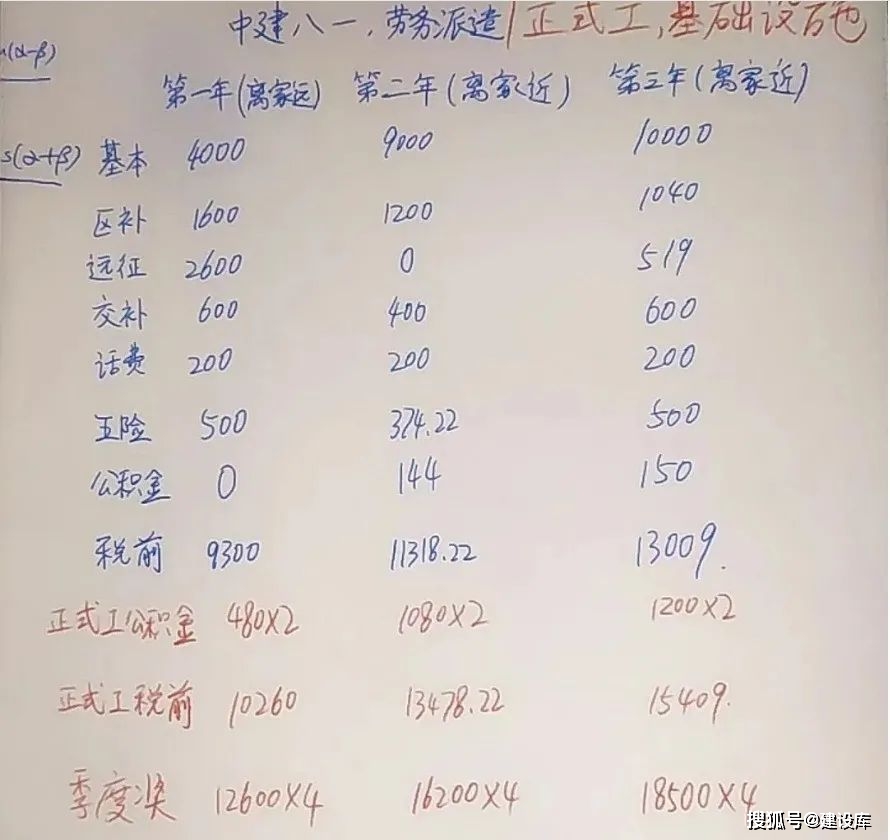 中建八一,劳务派遣/正式工,基础设
(α-β)
第一年(离家远) 第二年(离家近) 第三年(离家近)
s(α+β) 基本 4000 9000 10000
区补 1600 1200 1040
远征 2600 0 519
交补 600 400 600
话费 200 200 200
五险 500 374.22 500
公积金 0 144 150
税前 9300 11318.22 13009.
正式工公积金 480×2 1080×2 1200×2
正式工税前 10260 13478.22 15409.
季度奖 12600×4 16200×4 18500×4
搜狐号@建设库